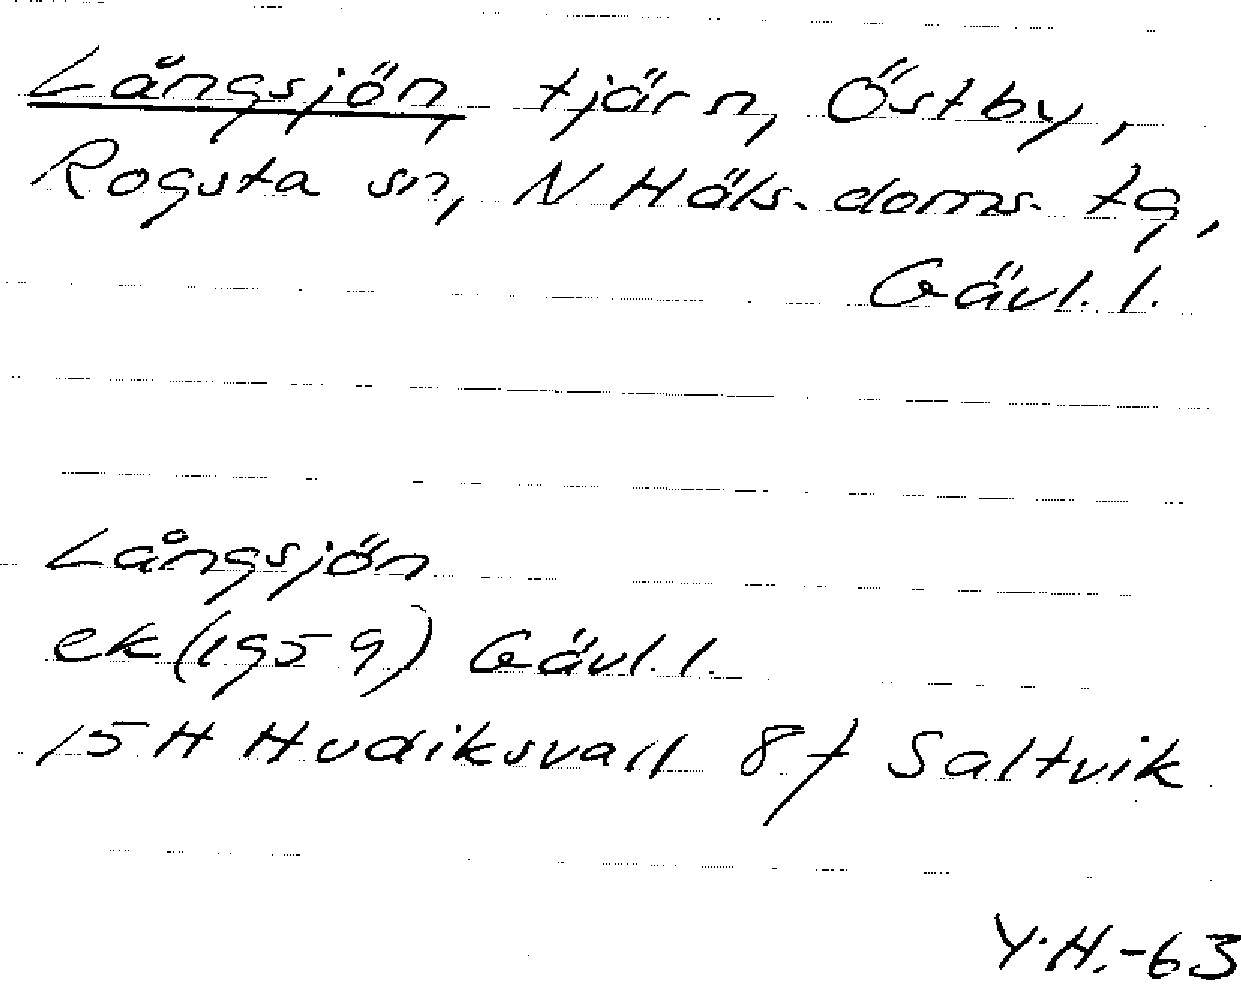 Långsjön, tjärn, Östby,
Rogsta sn, N Häls. doms. tg,
Gävl. l.
Långsjön
ek (1959) Gävl. l.
15 H Hudiksvall 8 f Saltvik
Y.H.-63